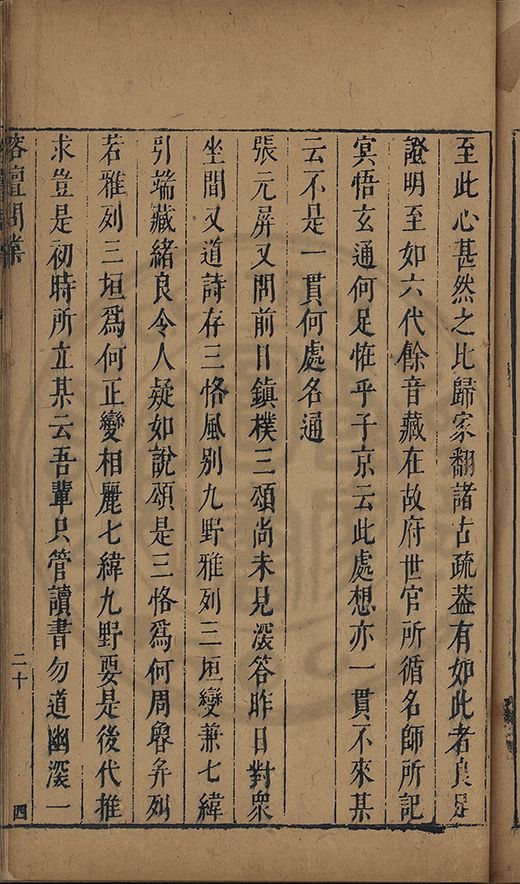 至此心甚然之比歸家翻諸古疏葢有如此者良是
證明至如六代餘音藏在故府世官所循名師所記
㝠悟玄通何足恠乎子京云此處想亦一貫不來某
云不是一貫何處名通
張元屏又問前日鎮樸三頌尚未見深答昨日對衆
坐間又道詩存三恪風别九野雅列三垣變兼七緯
引端藏緒良令人疑如說頌是三恪爲何周魯并列
若雅列三垣爲何正變相麗七緯九野要是後代推
求豈是初時所立某云吾輩只管讀書勿道幽深一
榕壇問業
二十
四